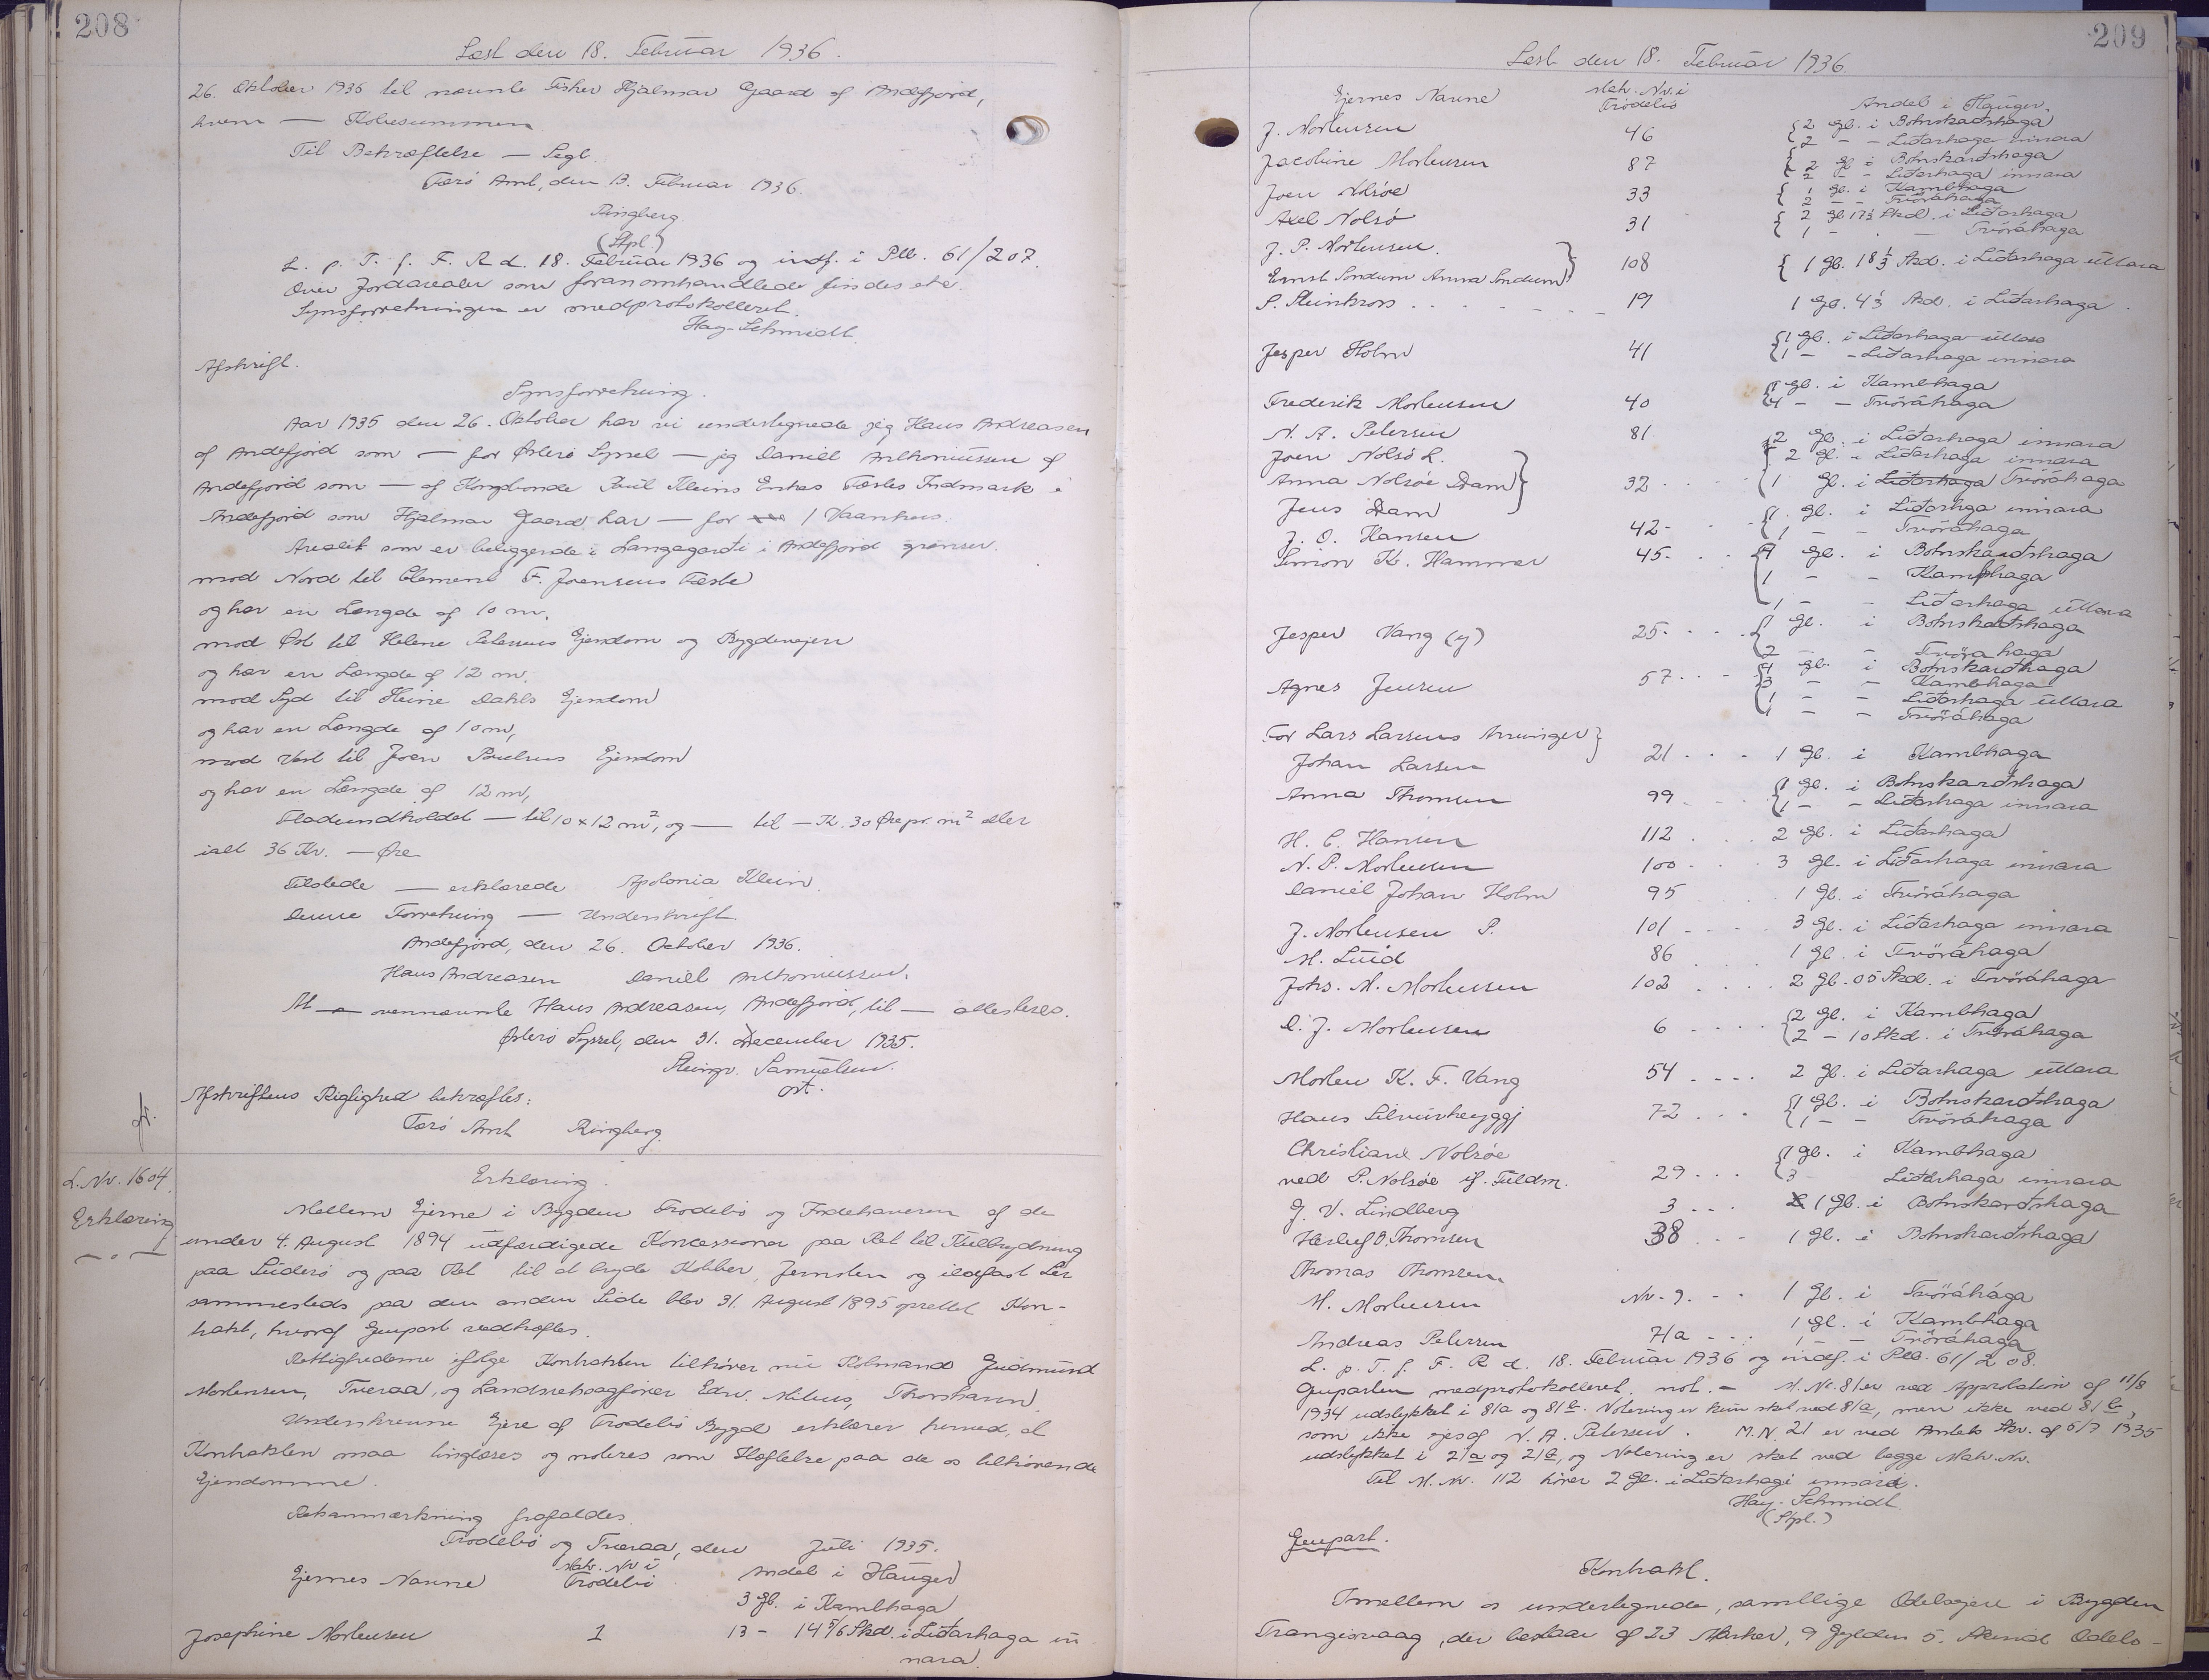 208
Læst den 18. Februar 1936.
26. Oktober 1935 til nævnte Fisker Hjalmar Gaard af Andefjord,
hvem — Købesummen
Til Bekræftelse — Segl.
Færø Amt, den 13. Februar 1936.
Ringberg.
(Stpl.)
L. p. T. f. F. R. d. 18. Februar 1936 og indf. i Pll. 61/207.
Over Jordarealer som foranomhandlede findes ikke
Synsforretningen er medprotokolleret.
Hay-Schmidt.
Afskrift.
Synsforretning.
Aar 1935 den 26. Oktober har vi undertegnede jeg Hans Andreasen
af Andefjord som — for Østerø Syssel — jeg Daniell Anthoniussen af
Andefjord som — af Kongsbonde Poul Kleins Enkes Fæstes Indmark i
Andefjord som Hjalmar Gaard har — for 1 Vaanhus.
Arealet som er beliggende i Langagarði i Andefjord grænser.
mod Nord til Clement F. Joensens Fæste
og har en Længde af 10 m.
mod Øst til Helene Petersens Ejendom og Bygdevejen
og har en Længde af 12 m.
mod Syd til Heine Dahls Ejendom
og har en Længde af 10 m,
mod Vest til Joen Poulsens Ejendom
og har en Længde af 12 m,
Fladeindholdet — til 10 x 12 m², og — til — K. 30 Øre pr. m² eller
ialt 36 Kr. — Øre
Tilstede — erklærede Apolonia Klein.
Denne Forretning — Underskrift.
Andefjord, den 26. October 1936.
Hans Andreasen Daniell Anthoniussen.
At — ovennævnte Hans Andreasen, Andefjord, til — attesteres.
Østerø Syssel, den 31. December 1935.
Steingr. Samuelsen.
cst.
Afskriftens Rigtighed bekræftes:
Færø Amt Ringberg.
L. Nr. 1604.
Erklæring
— o —
Erklæring.
Mellem Ejerne i Bygden Frodebø og Indehaveren af de
under 4. August 1894 udfærdigede Koncessioner paa Ret til Kulbrydning
paa Suderø og paa Ret til at bryde Kobber, Jernsten og ildfast Ler
sammesteds paa den anden Side blev 31. August 1895 oprettet Kon-
trakt, hvoraf Genpart vedhæftes.
Rettighederne ifølge Kontrakten tilhører nu Købmand Gudmund
Mortensen, Tveraa, og Landsretssagfører Edw. Mitens, Thorshavn.
Underskrevne Ejere af Frodebø Bygd erklærer herved, at
Kontrakten maa tinglæses og noteres som Hæftelse paa de os tilhørende
Ejendomme.
Retsanmærkning frafaldes.
Frodebø og Tveraa, den Juli 1935.
Ejernes Navne Matr. Nr. i Frodebø Andel i Hauger
3 Gl. i Kambhaga
Josephine Mortensen 1 13 - 14 5/6 Skd. i Liðarhaga in
nara
209
Læst den 18. Februar 1936.
Ejernes Navne Matr. Nr. i Frodebø Andel i Hauger.
J. Mortensen 46 { 2 Gl. i Botnskarðshaga
2 — - Liðarhaga innara
Jacobine Mortensen 87 { 2 Gl. i Botnskarðshaga
2 — - Liðarhaga innara
Joen Nolsøe 33 { 1 Gl. i Kambhaga
2 — - Tvöráhaga
Axel Nolsø 31 { 2 Gl 17½ Skd. i Liðarhaga
1 — - Tvöráhaga
J. P. Mortensen.
Ernst Sondum Anna Sondum } 108 { 1 Gl. 18 1/3 Skd. i Liðarhaga úttara
S. Steinkross 19 1 Gl. 4 1/3 Skd. i Liðarhaga.
Jesper Holm 41 { 1 Gl. i Liðarhaga úttara
1 — - Liðarhaga innara
Frederik Mortensen 40 { 1 Gl. i Kambhaga
4 — - Tvöráhaga
N. A. Petersen 81 2 Gl. i Liðarhaga innara
Joen Nolsø L. { 2 Gl. i Liðarhaga innara
Anna Nolsøe Dam } 32 1 Gl. i Liðarhaga Tvöráhaga
Jens Dam { 1 Gl. i Liðarhga innara
J. O. Hansen 42 1 — - Tvöráhaga
Simon K. Hammer 45 { 4 Gl. i Botnskarðshaga
1 — - Kambhaga
1 — - Liðarhaga úttara
Jesper Vang (y) 25 { 1 Gl. i Botnskarðshaga
2 — - Tvöra haga
Agnes Jensen 57 { 4 Gl. i Botnskarðhaga
3 — - Kambhaga
1 — - Liðarhaga úttara
1 — - Tvöráhaga
For Lars Larsens Arvinger }
Johan Larsen 21 1 Gl. i Kambhaga
Anna Thomsen 99 { 1 Gl. i Botnskarðshaga
1 — - Liðarhaga innara
H. C. Hansen 112 2 Gl. i Liðarhaga
N. P. Mortensen 100 3 Gl. i Liðarhaga innara
Daniel Johan Holm 95 1 Gl. i Tvöráhaga
J. Mortensen P. 101 3 Gl. i Liðarhaga innara
M. Luid 86 1 Gl. i Tvöráhaga
Johs. M. Mortensen 102 2 Gl. 05 Skd. i Tvöráhaga
D. J. Mortensen 6 { 2 Gl. i Kambhaga
2 — 10 Skd. i Tvöráhaga
Morten K. F. Vang 54 2 Gl. i Liðarhaga úttara
Hans Silvurheyggj 72 { 1 Gl. i Botnskarðshaga
1 — - Tvöráhaga
Christiane Nolsøe { 1 Gl. i Kambhaga
ved P. Nolsøe if. Fuldm. 29 3 Liðarhaga innara
J. V. Lindberg 3 1 Gl. i Botnskarðshaga
Herluf O. Thomsen 38 1 Gl. i Botnskarðshaga
Thomas Thomsen.
M. Mortensen Nr. 9. 1 Gl. i Tvöráhaga
1 Gl. i Kambhaga
Andreas Petersen 71a 1 — - Tvöráhaga
L. p. T. f. F. R. d. 18. Februar 1936 og indf. i Pll. 61/208.
Genparten medprotokolleret. not. - M. Nr. 81 er ved Approbation af 11/8
1934 udstykket i 81a og 81b. Notering er kun sket ved 81a, men ikke ved 81b,
som ikke ejes af N. A. Petersen. M.N. 21 er ved Amtets Skr. af 5/7 1935
udstykket i 21a og 21b, og Notering er sket ved begge Matr. Nr.
Til M. Nr. 112 hører 2 Gl. i Liðarhagi innari.
Hay-Schmidt.
(Stpl.)
Genpart.
Kontrakt.
Imellem os undertegnede, samtlige Odelsejere i Bygden
Trangisvaag, der bestaar af 23 Marker, 9 Gylden 5. Skind Odels-